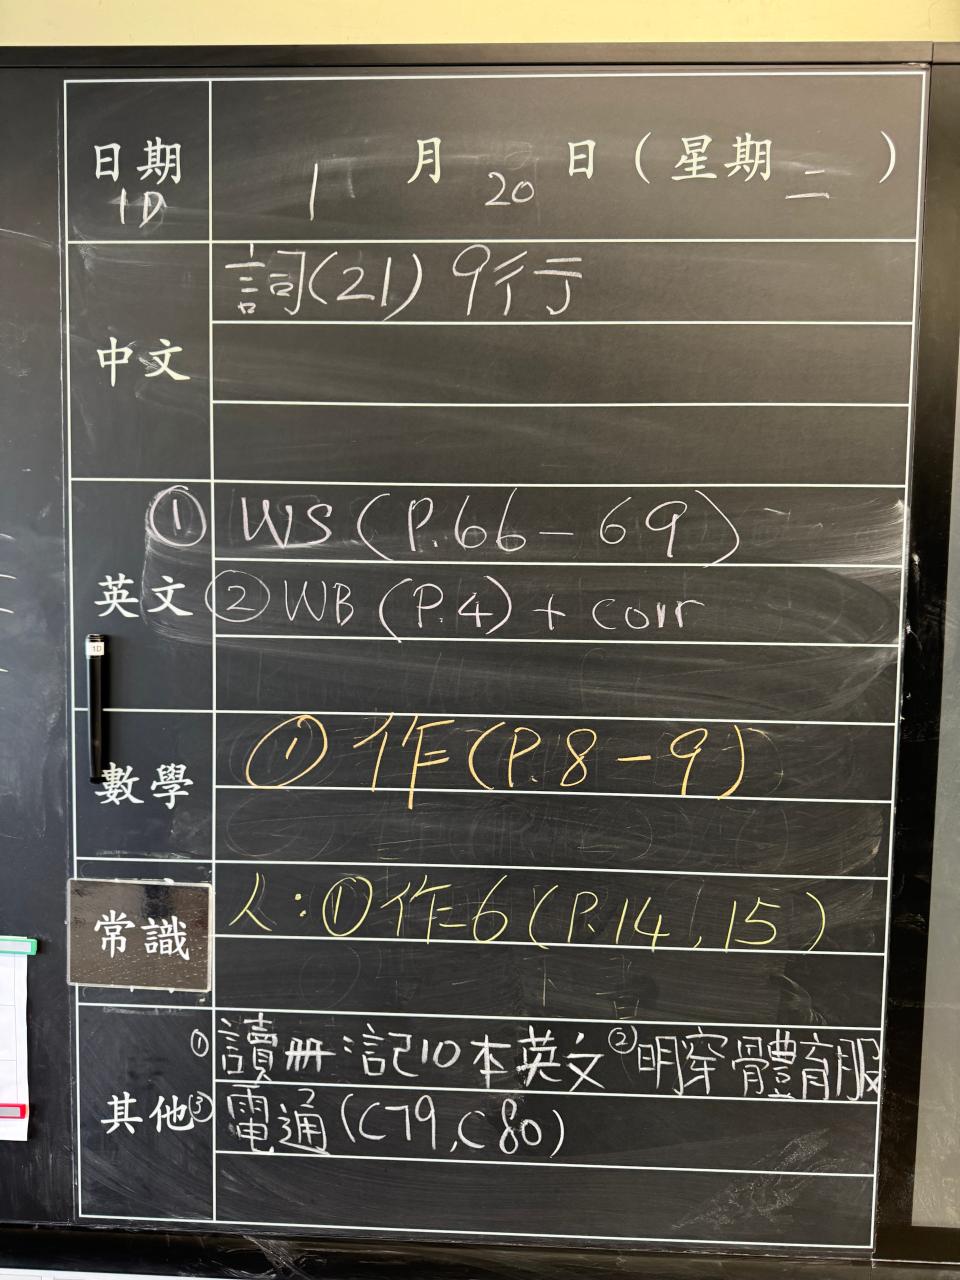 日期 1月20日(星期二)
1D
中文 詞(21) 9行
英文 ① WS (P.66-69)
② WB (P.4) + corr
1D
數學 ① 作(P.8-9)
常識 人:① 作-6 (P.14, 15)
其他 ① 讀冊:記10本英文 ② 明穿體育服
③ 電通(C79, C80)